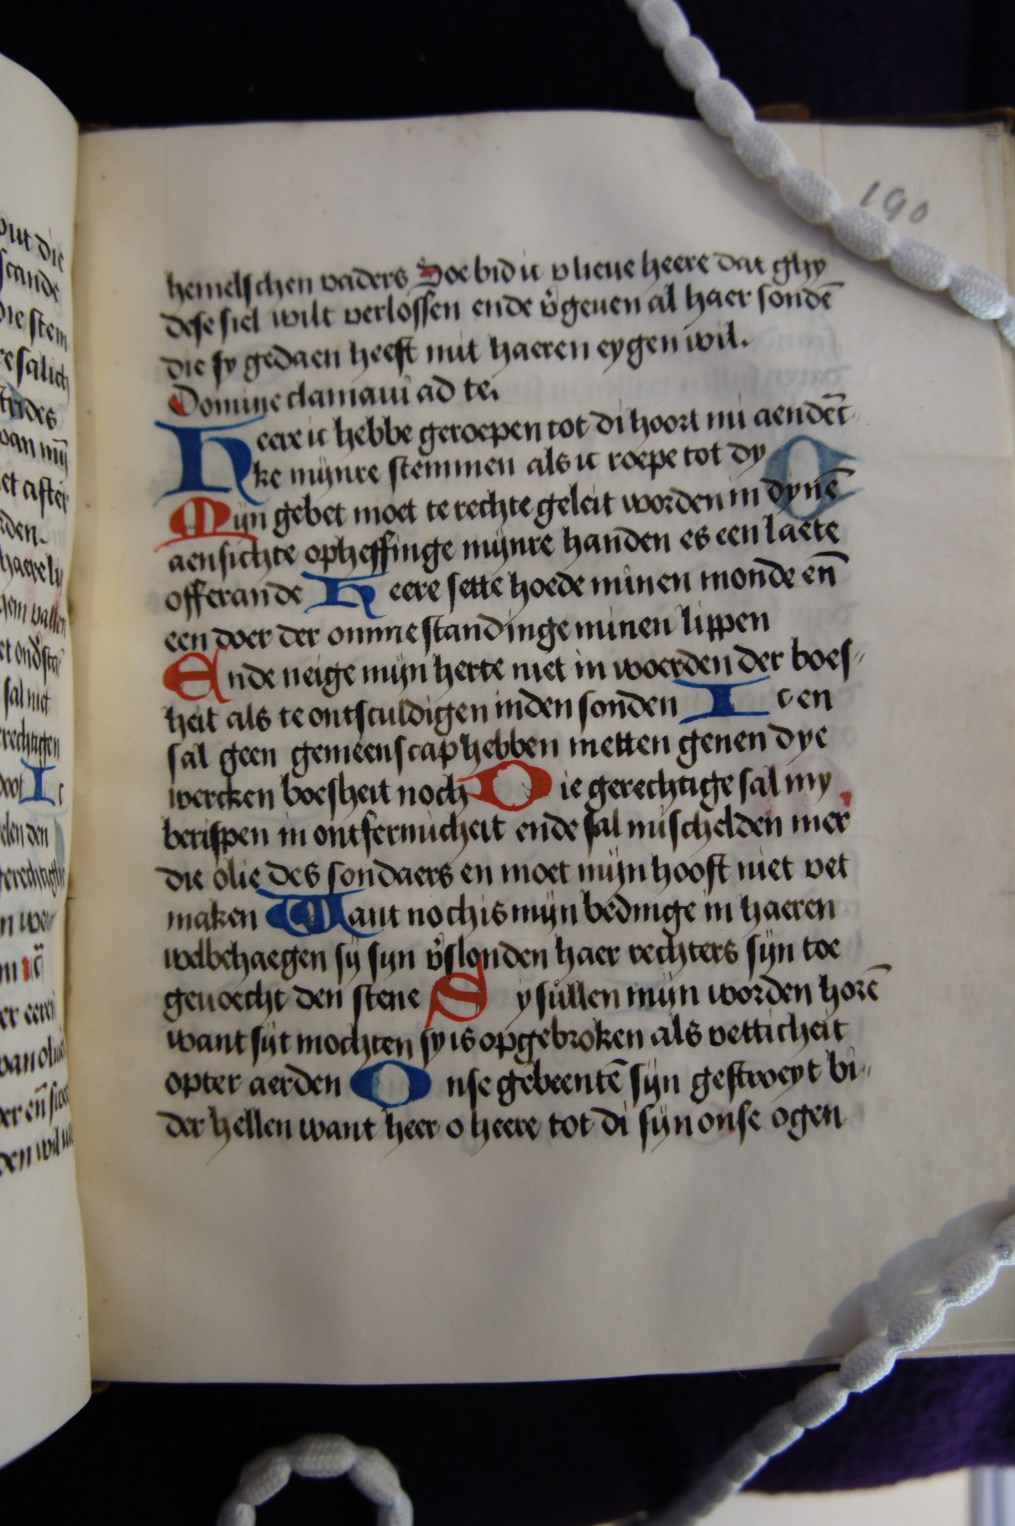 190
hemelschen vaders Soe bid ic v lieue heere dat ghy
dese siel wilt verlossen ende v̉geuen al haer sondē
die sy gedaen heeft mit haeren eygen wil.
Domine clamaui ad te.
Heere ic hebbe geroepen tot di hoort mi aendēc
ke mijnre stemmen als ic roepe tot dy
Mijn gebet moet te rechte geleit worden in dynē
aensichte opheffinge mijnre handen es een laete
offerande Heere sette hoede minen monde en̄
een doer der omme standinge minen lippen
Ende neige mijn herte niet in woerden der boes
heit als te ontsculdigen inden sonden Ic en
sal geen gemeenscap hebben metten genen dye
wercken boesheit noch Die gerechtige sal my
berispen in ontfermicheit ende sal mi schelden mer
die olie des sondaers en moet mijn hooft niet vet
maken Want noch is mijn bedinge in haeren
welbehaegen sij sijn v̉slonden haer rechters sijn toe
geuoecht den stene Sy sullen mijn worden horē
want sijt mochten sy is opgebroken als vetticheit
opter aerden Onse gebeentē sijn gestroeyt bi
der hellen want heer o heere tot di sijn onse ogen